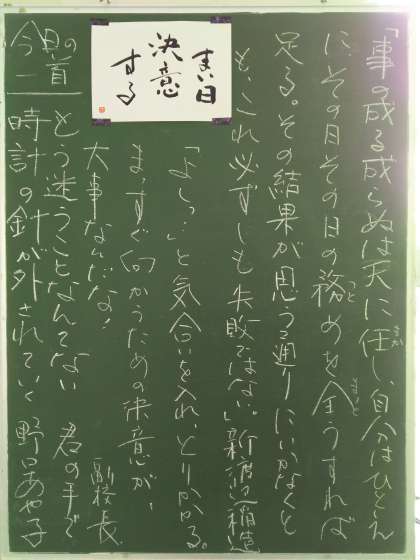 まい日
決意
する
「事の成る成らぬは天に任し、自分はひとえ
まか
に、その日その日の務めを全うすれば
つと
まっと
足る。その結果が思う通りにいかなくと
も、これ必ずしも失敗ではない。」新渡辺稲造
「よしっ」と気合いを入れ、とりかかる。
まっすぐ向かうための決意が、
大事なんだな!
副校長
の一首
もう迷うことなんてない 君の手で
時計の針が外されていく 野口あや子